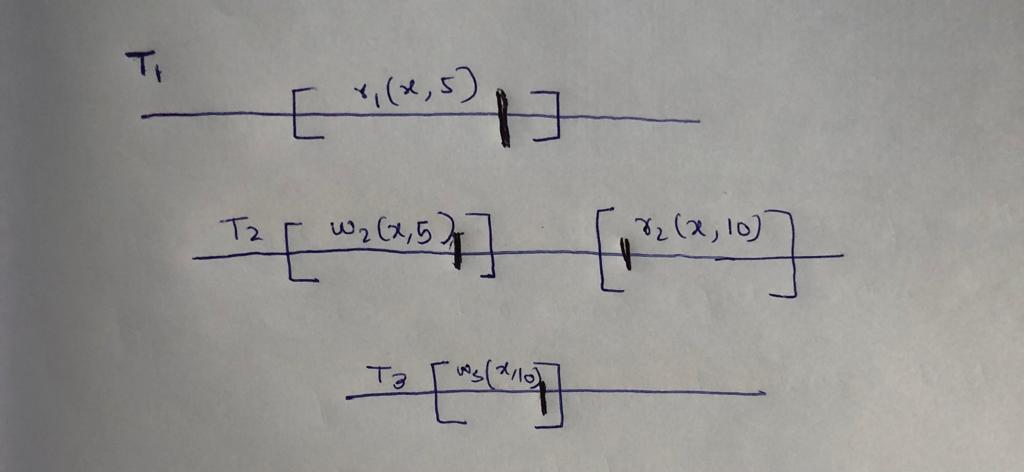 T1
[ r1(x,5) ]
T2 [ w2(x,5) ] [ r2(x,10) ]
T3 [ w3(x,10) ]